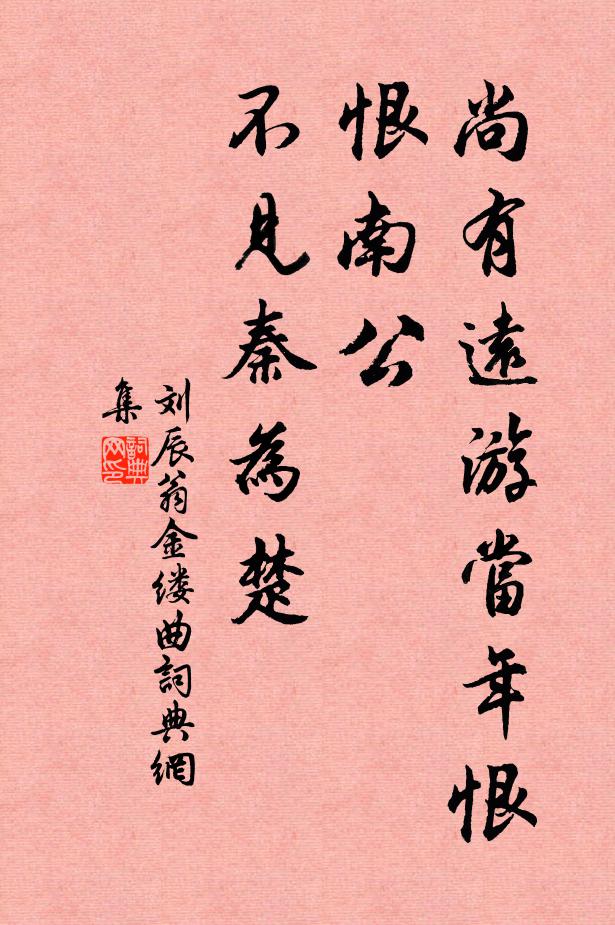 尚有遠游當年恨
恨南公
不見秦為楚
刘辰翁金缕曲詞典網
集
詞典
网印